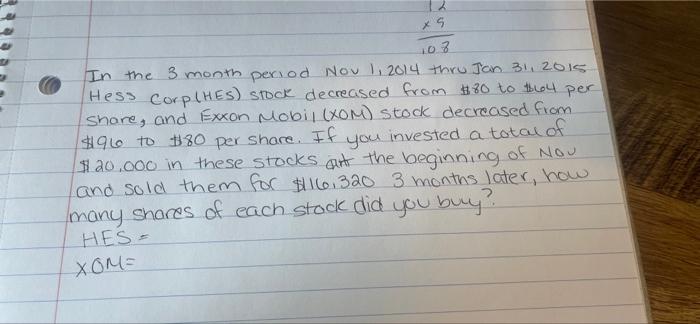 12
x 9
108
In the 3 month period Nov 1, 2014 thru Jan 31, 2015
Hess Corp (HES) stock decreased from $80 to $64 per
share, and Exxon Mobil (XOM) stock decreased from
$96 to $80 per share. If you invested a total of
$20,000 in these stocks at the beginning of Nov
and sold them for $16,320 3 months later, how
many shares of each stock did you buy?
HES =
XOM=